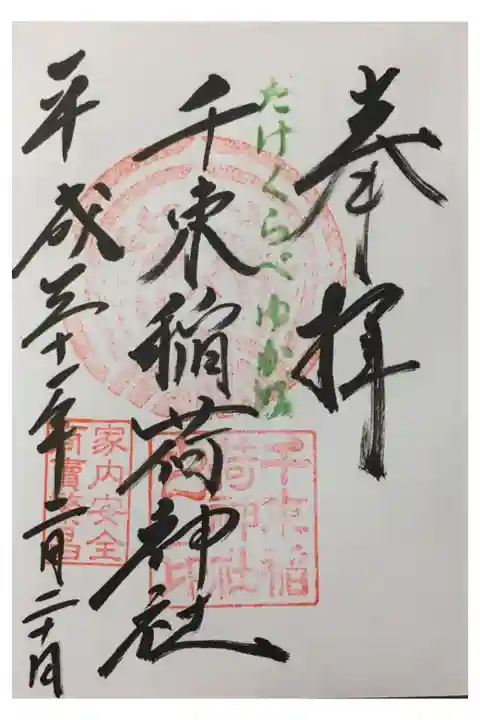 奉拝
たけくらべゆかり
千束稲荷神社
平成三十一年二月二十日
千束稲荷神社
家内安全
商賣繁昌